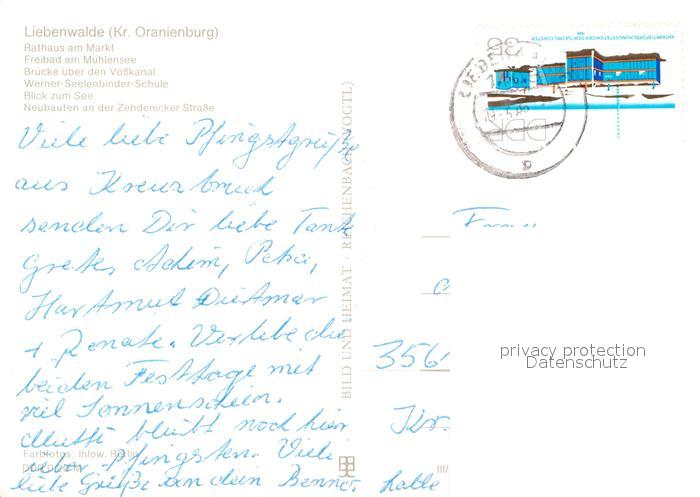 Liebenwalde (Kr. Oranienburg)
Rathaus am Markt
Freibad am Mühlensee
Brücke über den Voßkanal
Werner-Seelenbinder-Schule
Blick zum See
Neubauten an der Zehdenicker Straße
Viele liebe Pfingstgrüße
aus Kreuzbruch
senden Dir liebe Tante
Grete, Achim, Petra,
Hartmut Dietmar
+ Renate. Verlebe die
beiden Festtage mit
viel Sonnenschein.
Mutti bleibt noch hier
über Pfingsten. Viele
liebe Grüße an dein Benne.
Farbfotos: Ihlow, Berlin
BILD UND HEIMAT · REICHENBACH (VOGTL)
35
DDR
ANTARKTISFORSCHUNGSSTATION DER DDR "GEORG FORSTER"
356
halbe
III/
privacy protection
Datenschutz